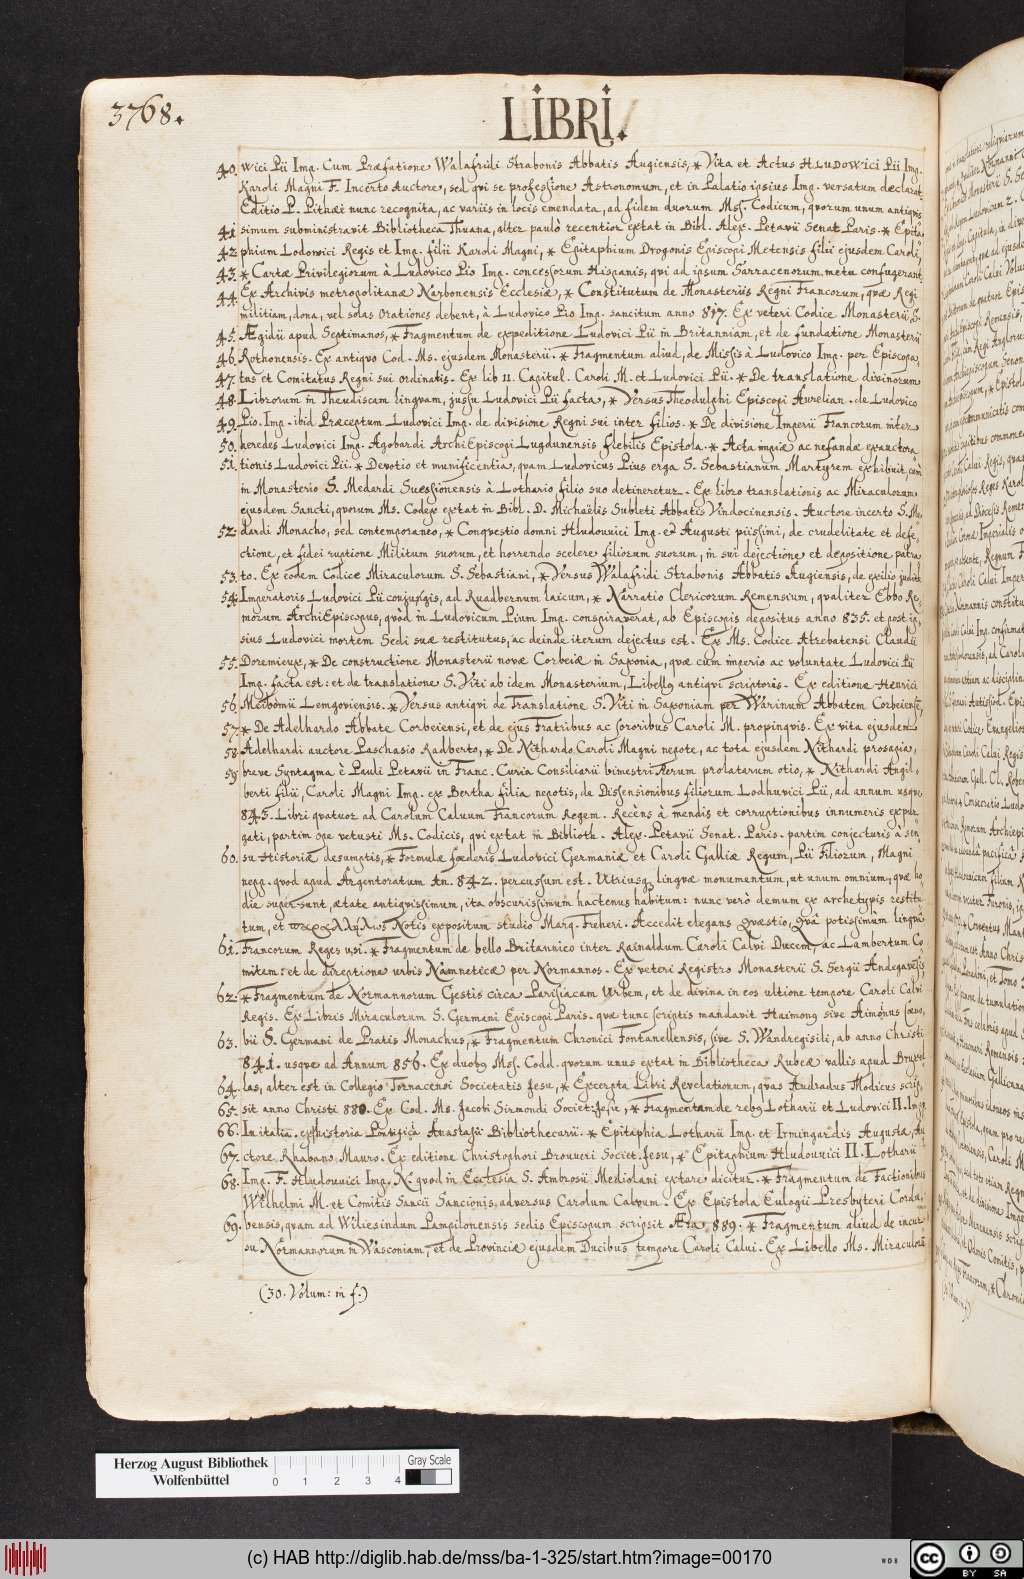 3768.
LIBRI.
40. wici Pii Imp. Cum Præfatione Walafridi Strabonis Abbatis Augiensis, * Vita et Actus HLUDOWici Pii Imp.
Karoli Magni F. Incerto Auctore, sed qvi se professione Astronomum, et in Palatio ipsius Imp. versatum declarat
Editio P. Pithæi nunc recognita, ac variis in locis emendata, ad fidem duorum Mss. Codicum, qvorum unum antiqvis
41 simum subministravit Bibliotheca Thuana, alter paulò recentior extat in Bibl. Alex. Petavii Senat. Paris. * Epita-
42 phium Lodowici Regis et Imp. filii Karoli Magni, * Epitaphium Drogonis Episcopi Metensis filii ejusdem Caroli,
43. * Cartæ Privilegiorum à Ludovico Pio Imp. concessorum Hispanis, qvi ad ipsum Sarracenorum metu confugerant,
44. Ex Archivis metropolitanæ Narbonensis Ecclesiæ, * Constitutum de Monasteriis Regni Francorum, qvæ Regi
militiam, dona, vel solas orationes debent, à Ludovico Pio Imp. sancitum anno 817. Ex veteri Codice Monasterii S.
45. Ægidii apud Septimanos, * Fragmentum de expeditione Ludovici Pii in Britanniam, et de fundatione Monasterii
46. Rothonensis. Ex antiqvo Cod. Ms. ejusdem Monasterii. * Fragmentum aliud, de Missis à Ludovico Imp. per Episcopa-
47. tus et Comitatus Regni sui ordinatis. Ex lib 11. Capitul. Caroli M. et Ludovici Pii. * De translatione divinorum
48. Librorum in Theudiscam lingvam, jussu Ludovici Pii facta, * Versus Theodulphi Episcopi Aurelian. de Ludovico
49. Pio. Imp. ibid Præceptum Ludovici Imp. de divisione Regni sui inter filios. * De divisione Imperii Francorum inter
50. heredes Ludovici Imp. Agobardi ArchiEpiscopi Lugdunensis flebilis Epistola. * Acta impiæ ac nefandæ exauctora
51. tionis Ludovici Pii. * Devotio et munificentia, qvam Ludovicus Pius erga S. Sebastianum Martyrem exhibuit, cùm
in Monasterio S. Medardi Suessionensis à Lothario filio suo detineretur. Ex libro translationis ac Miraculorum
ejusdem Sancti, qvorum Ms. Codex extat in Bibl. D. Michaëlis Subleti Abbatis Vindocinensis. Auctore incerto S. Me-
52. dardi Monacho, sed contemporaneo, * Conqvestio domni Hludouuici Imp. et Augusti piissimi, de crudelitate et defe-
ctione, et fidei ruptione Militum suorum, et horrendo scelere filiorum suorum, in sui dejectione et depositione patra
53. to. Ex eodem Codice Miraculorum S. Sebastiani, * Versus Walafridi Strabonis Abbatis Augiensis, de exilio judith
54. Imperatoris Ludovici Pii conjugis, ad Ruadbernum laicum, * Narratio Clericorum Remensium, qvaliter Ebbo Re-
morum ArchiEpiscopus, qvòd in Ludovicum Pium Imp. conspiraverat, ab Episcopis depositus anno 835. et post ip-
sius Ludovici mortem Sedi suæ restitutus, ac deinde iterum dejectus est. Ex Ms. Codice Atrebatensi Claudii
55. Doremieux, * De constructione Monasterii novæ Corbeiæ in Saxonia, qvæ cum imperio ac voluntate Ludovici Pii
Imp. facta est: et de translatione S. Viti ab idem Monasterium, Libellg antiqvi scriptoris. Ex editione Henrici
56. Meibomii Lemgoviensis. * Versus antiqvi de Translatione S. Viti in Saxoniam per Warinum Abbatem Corbeiens,
57. * De Adelhardo Abbate Corbeiensi, et de ejus Fratribus ac sororibus Caroli M. propinqvis. Ex vita ejusdem
58 Adelhardi auctore Paschasio Radberto, * De Nithardo Caroli Magni nepote, ac tota ejusdem Nithardi prosapia,
59 breve Syntagma è Pauli Petavii in Franc. Curia Consiliarii bimestri Rerum prolatarum otio, * Nithardi Angil-
berti filii, Caroli Magni Imp. ex Bertha filia nepotis, de Dissensionibus filiorum Lodhuvici Pii, ad annum usqve
843. Libri qvatuor ad Carolum Calvum Francorum Regem. Recèns à mendis et corruptionibus innumeris expur
gati, partim ope vetusti Ms. Codicis, qvi extat in Biblioth. Alex. Petavii Senat. Paris. partim conjecturis à sen
60. su Historiæ desumptis, * Formulæ fœderis Ludovici Germaniæ et Caroli Galliæ Regum, Pii Filiorum, Magni
nepp. qvod apud Argentoratum An. 842. percussum est. Utriusq lingvæ monumentum, ut unum omnium, qvæ ho-
die super-sunt, ætate antiqvissimum, ita obscurissimum hactenus habitum: nunc verò demum ex archetypis restitu
tum, et παραλλήλως Notis expositum studio Marq. Freheri. Accedit elegans Qvæstio, Qvâ potissimùm lingvâ
61. Francorum Reges usi. * Fragmentum de bello Britannico inter Rainaldum Caroli Calvi Ducem, ac Lambertum Co
mitam: et de direptione urbis Namneticæ per Normannos. Ex veteri Registro Monasterii S. Sergii Andegavesis,
62. * Fragmentum de Normannorum Gestis circa Parisiacam Urbem, et de divina in eos ultione tempore Caroli Calvi
Regis. Ex Libris Miraculorum S. Germani Episcopi Paris. qvæ tunc scriptis mandavit Haimong sive Aimonus cœno-
63. bii S. Germani de Pratis Monachus, * Fragmentum Chronici Fontanellensis, sive S. Wandregisili, ab anno Christi
841. usqve ad Annum 856. Ex duobg Mss. Codd. qvorum unus extat in Bibliotheca Rubeæ vallis apud Bruxel
64. las, alter est in Collegio Tornacensi Societatis Jesu, * Excerpta Libri Revelationum, qvas Audradus Modicus scrip
65. sit anno Christi 880. Ex Cod. Ms. Jacobi Sirmondi Societ: Jesu, * Fragmentum de rebg Lotharii et Ludovici II. Imp.
66. In italia. ex historia Pontifica Anastasii Bibliothecarii. * Epitaphia Lotharii Imp. et Irmingardis Augustæ, Au
67. ctore Rhabano Mauro. Ex editione Christophori Broweri Societ. Jesu, * Epitaphium Hludouuici II. Lotharii
68. Imp. F. Hludouuici Imp. N. qvod in Ecclesia S. Ambrosii Mediolani extare dicitur. * Fragmentum de Factionibus
Wilhelmi M. et Comitis Sancii Sancionis, adversus Carolum Calvum. Ex Epistola Eulogii Presbyteri Cordu-
69. bensis, qvam ad Wiliesindum Pampilonensis sedis Episcopum scripsit Æra. 889. * Fragmentum aliud de incur
su Normannorum in Wasconiam, et de Provinciæ ejusdem Ducibus tempore Caroli Calui. Ex Libello Ms. Miraculorū
(30. Volum: in f.)
Herzog August Bibliothek
Wolfenbüttel
0 1 2 3 4
Gray Scale
(c) HAB http://diglib.hab.de/mss/ba-1-325/start.htm?image=00170
WDB
cc BY SA